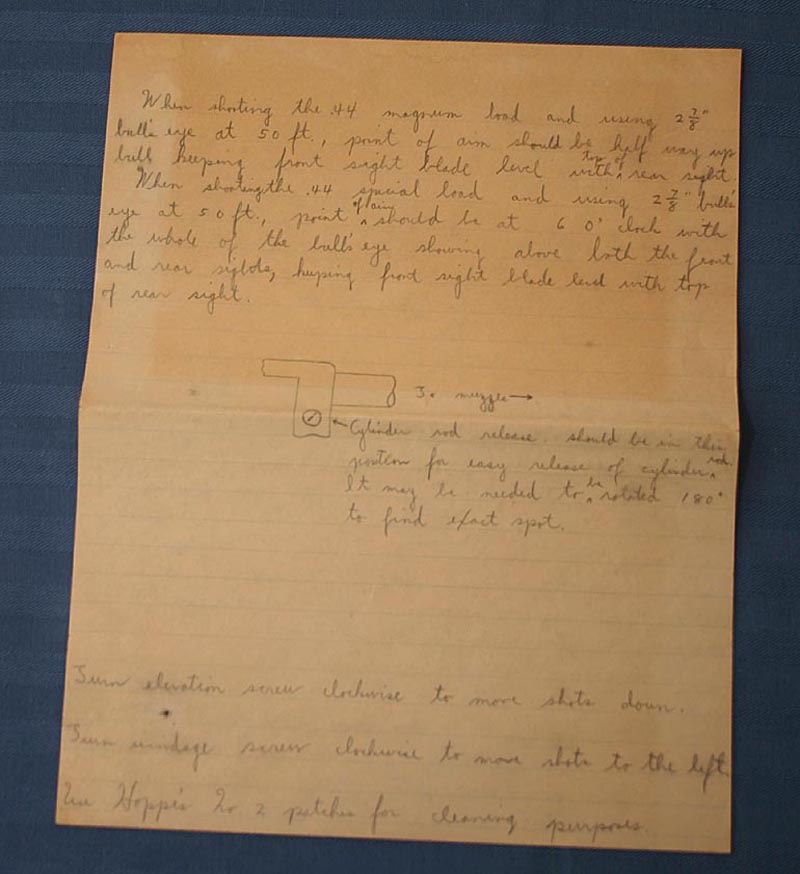 When shooting the .44 magnum load and using 2 7/8"
bull's eye at 50 ft., point of aim should be half way up
bull keeping front sight blade level with top of rear sight.
When shooting the .44 special load and using 2 7/8" bull's
eye at 50 ft., point of aim should be at 6 O'clock with
the whole of the bull's eye showing above both the front
and rear sights, keeping front sight blade level with top
of rear sight.
To muzzle →
Cylinder rod release should be in this
position for easy release of cylinder rod.
It may be needed to be rotated 180°
to find exact spot.
Turn elevation screw clockwise to move shots down.
Turn windage screw clockwise to move shots to the left.
Use Hoppe's No 2 patches for cleaning purposes.